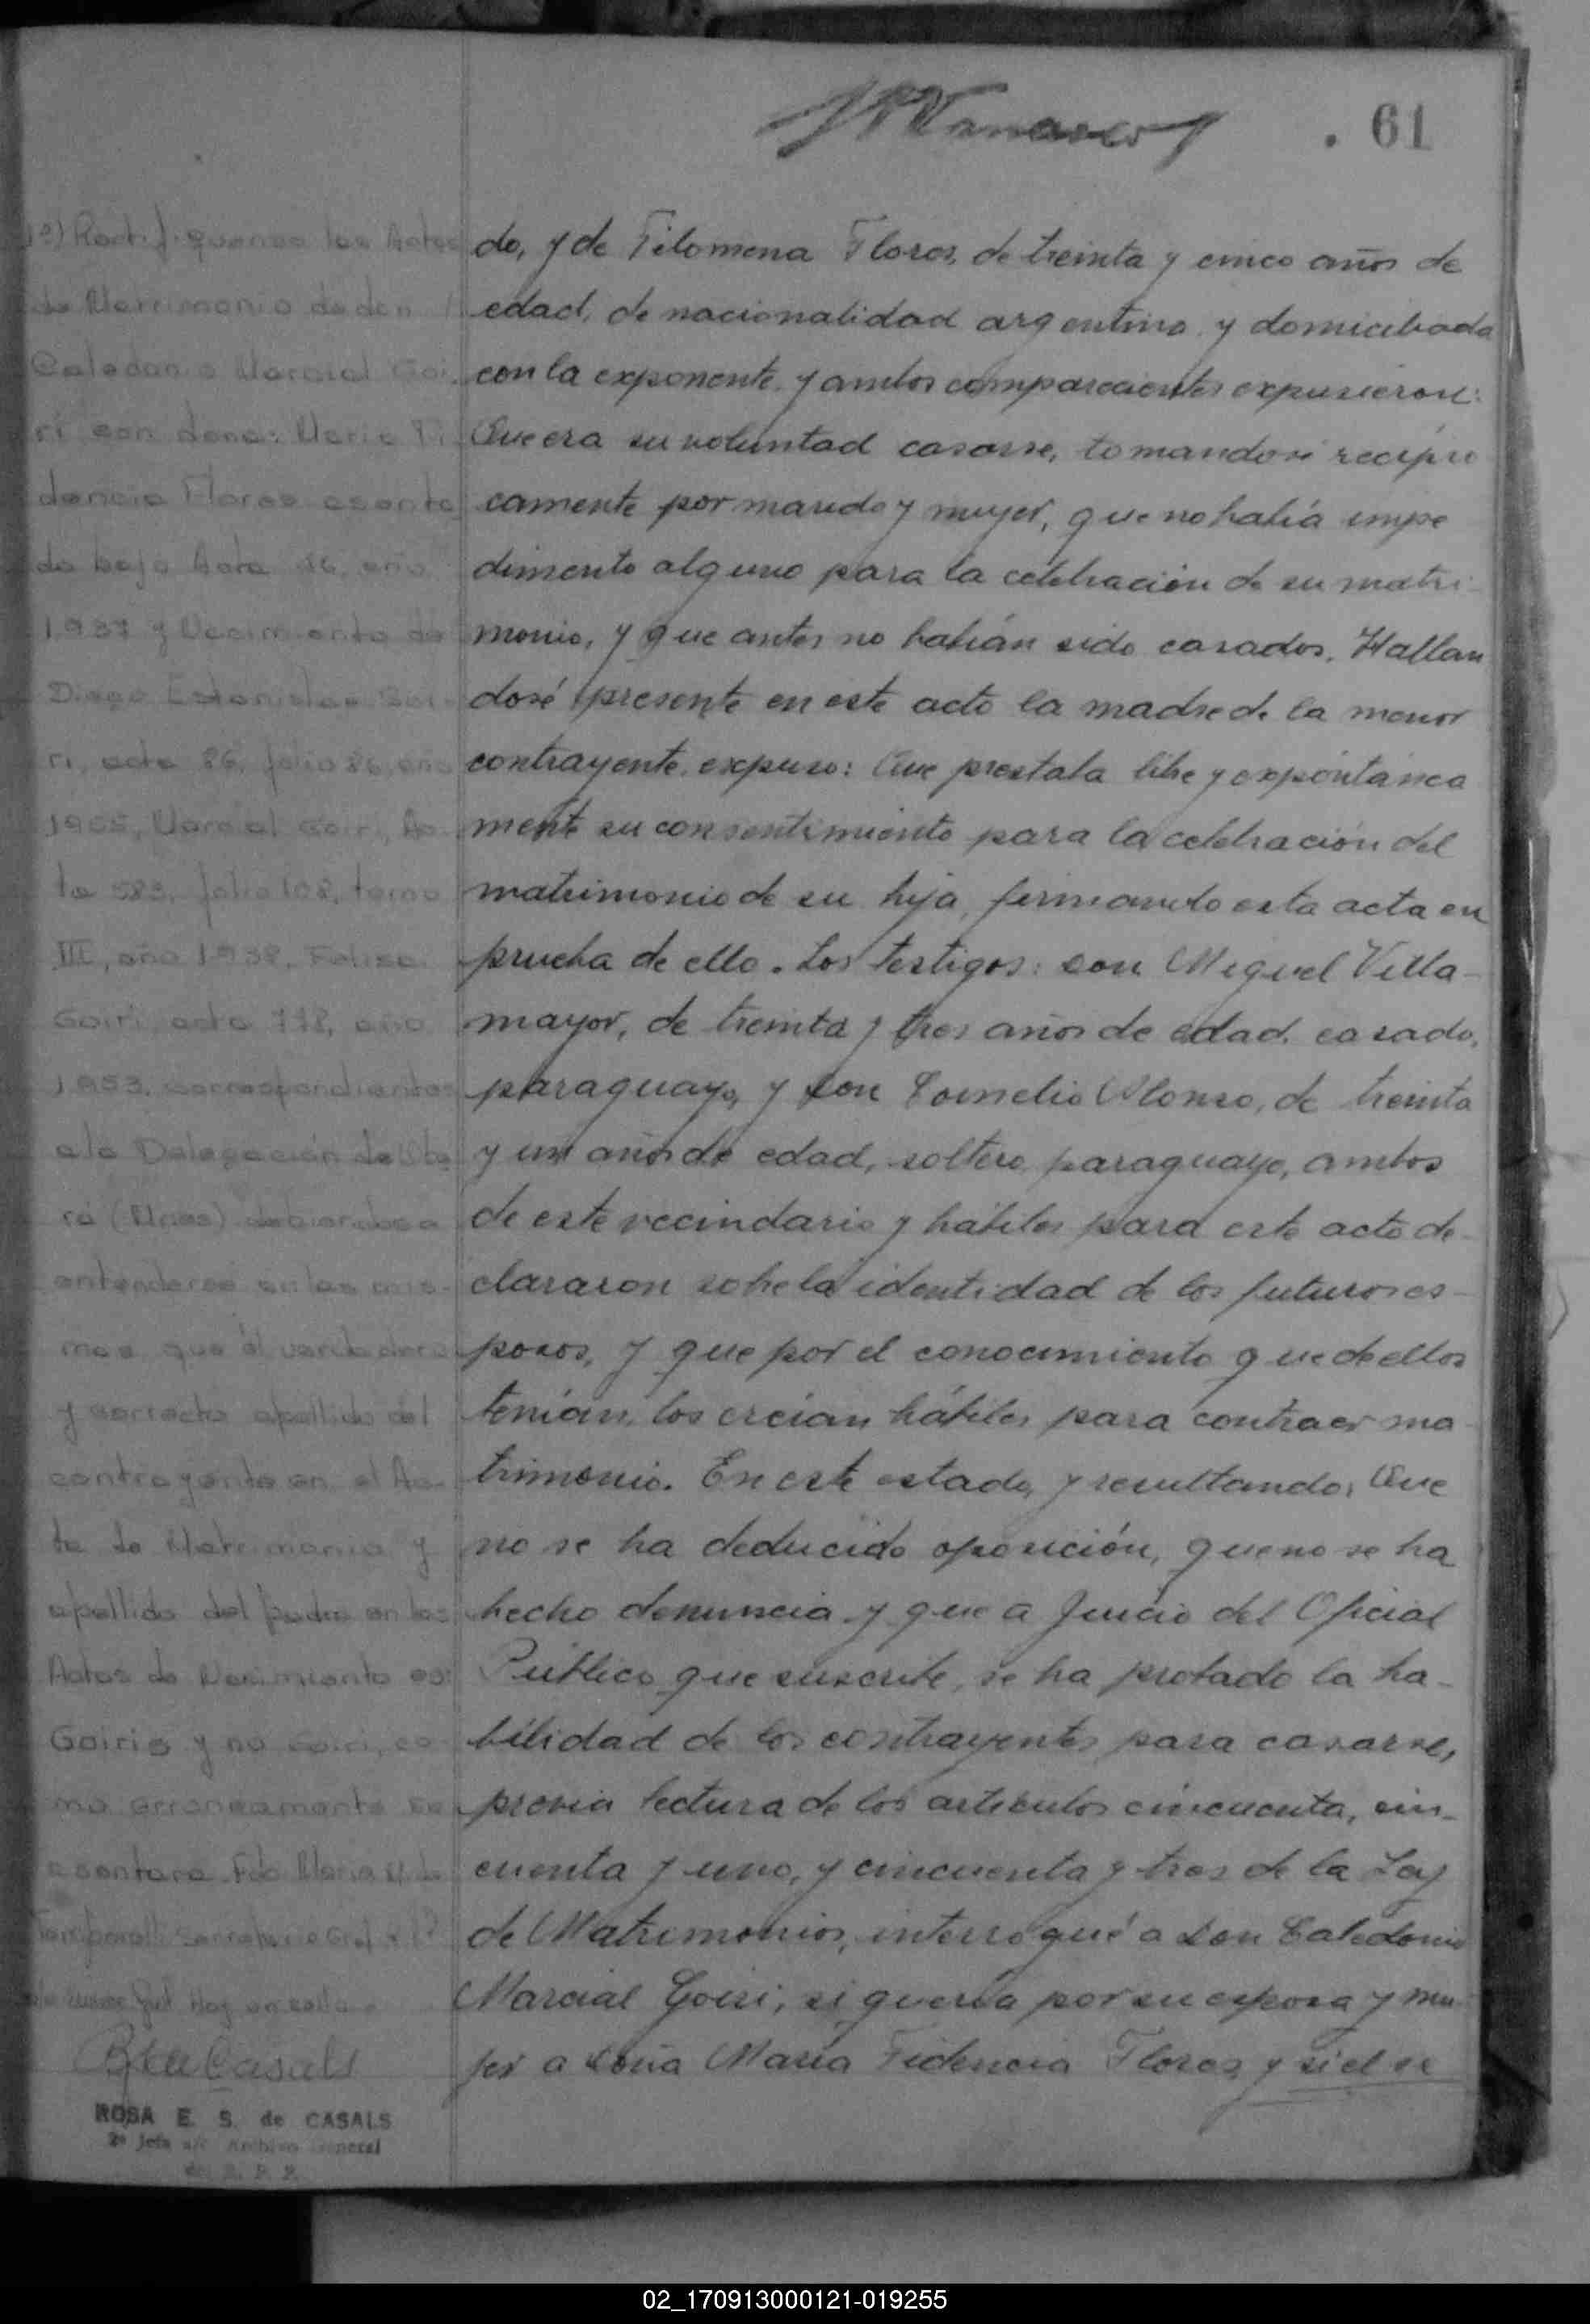 61
do, y de Filomena Flores, de treinta y cinco años de
edad, de nacionalidad argentina y domiciliada
con la exponente y ambos comparecientes expusieron:
Que era su voluntad casarse, tomandose recipro
camente por marido y mujer, que no había impe
dimento alguno para la celebración de su matri-
monio, y que antes no habían sido casados. Hallan
dosé presente en este acto la madre de la menor
contrayente, expuso: Que prestaba libre y expontánea
mente su consentimiento para la celebración del
matrimonio de su hija, firmando esta acta en
prueba de ello. Los testigos: don Miguel Villa-
mayor, de treinta y tres años de edad, casado,
paraguayo, y don Cornelio Alonso, de treinta
y un años de edad, soltero, paraguayo, ambos
de este vecindario y hábiles para este acto de-
clararon sobre la identidad de los futuros es-
posos, y que por el conocimiento que de ellos
tenían, los creían hábiles para contraer ma-
trimonio. En este estado, y resultando, Que
no se ha deducido oposición, que no se ha
hecho denuncia y que a juicio del Oficial
Público que suscribe, se ha probado la ha-
bilidad de los contrayentes para casarse,
previa lectura de los articulos cincuenta, cin-
cuenta y uno, y cincuenta y tres de la Ley
de Matrimonios, interrogué a don Caledonio
Marcial Goiri, si quería por su esposa y mu-
jer a doña María Fidencia Flores, y si el se
1º) Rectifiquense las Actas
de Matrimonio de don
Caledonio Marcial Goi
ri con doña: Maria Fi
dencia Flores asenta
da bajo Acta 26, año
1937 y Nacimiento de
Diego Estanislao Goi-
ri, acta 86, folio 86, año
1955, Marcial Goiri, Ac
ta 583, folio 108, tomo
III, año 1938, Felisa
Goiri, acta 718, año
1953, correspondientes
a la Delegación de
debiendose
entenderse en las mis-
mas que el verdadero
y correcto apellido del
contrayente en el Ac-
ta de Matrimonio y
apellido del padre en las
Actas de Nacimiento es:
Goiris y no Goiri, co-
mo erroneamente se
asentara. Fdo Maria
ROSA E. S. de CASALS
2ª Jefa a/c Archivo General
02_170913000121-019255